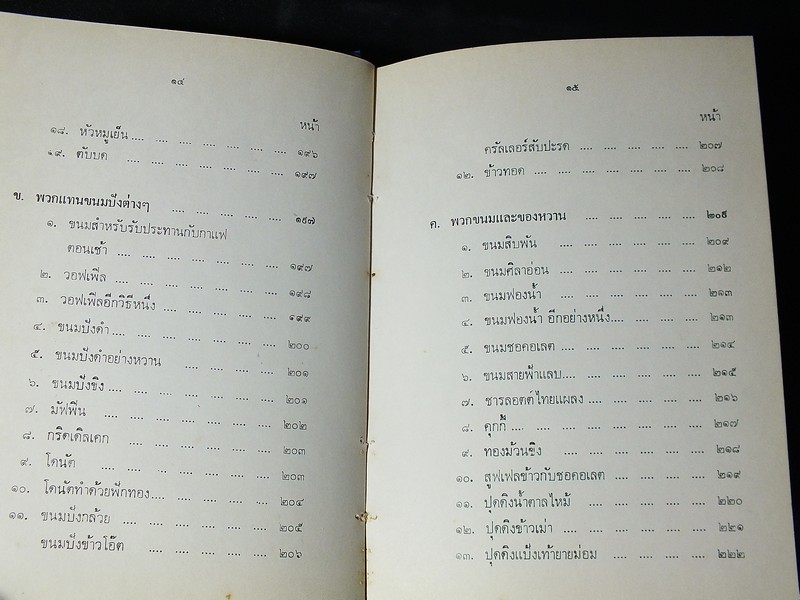 ๑๔
หน้า
๑๘. หัวหมูเย็น .... .... .... .... .... .... .... ๑๙๖
๑๙. ตับบด .... .... .... .... .... .... .... ๑๙๗
ข. พวกแทนขนมปังต่างๆ .... .... .... .... .... ๑๙๗
๑. ขนมสำหรับรับประทานกับกาแฟ
ตอนเช้า .... .... .... .... .... .... .... ๑๙๗
๒. วอฟเฟิล .... .... .... .... .... .... .... ๑๙๘
๓. วอฟเฟิลอีกวิธีหนึ่ง .... .... .... .... .... ๑๙๙
๔. ขนมปังดำ .... .... .... .... .... .... .... ๒๐๐
๕. ขนมปังดำอย่างหวาน .... .... .... .... .... ๒๐๑
๖. ขนมปังขิง .... .... .... .... .... .... .... ๒๐๑
๗. มัฟฟิ่น .... .... .... .... .... .... .... ๒๐๒
๘. กริดเดิลเคก .... .... .... .... .... .... ๒๐๓
๙. โดนัต .... .... .... .... .... .... .... ๒๐๓
๑๐. โดนัตทำด้วยฟักทอง .... .... .... .... .... ๒๐๔
๑๑. ขนมปังกล้วย .... .... .... .... .... .... ๒๐๕
ขนมปังข้าวโอ๊ต .... .... .... .... .... .... ๒๐๖
๑๕
หน้า
ครัลเลอร์สับปะรด .... .... .... .... .... ๒๐๗
๑๒. ข้าวทอด .... .... .... .... .... .... .... ๒๐๘
ค. พวกขนมและของหวาน .... .... .... .... .... ๒๐๙
๑. ขนมสิบพัน .... .... .... .... .... .... ๒๐๙
๒. ขนมศิลาอ่อน .... .... .... .... .... .... ๒๑๒
๓. ขนมฟองน้ำ .... .... .... .... .... .... ๒๑๓
๔. ขนมฟองน้ำ อีกอย่างหนึ่ง .... .... .... .... ๒๑๓
๕. ขนมชอคอเลต .... .... .... .... .... .... ๒๑๔
๖. ขนมสายฟ้าแลบ .... .... .... .... .... .... ๒๑๕
๗. ชารลอตต์ไทยแผลง .... .... .... .... .... ๒๑๖
๘. คุกกี้ .... .... .... .... .... .... .... ๒๑๗
๙. ทองม้วนขิง .... .... .... .... .... .... ๒๑๘
๑๐. สูฟเฟลข้าวกับชอคอเลต .... .... .... .... ๒๑๙
๑๑. ปุดดิงน้ำตาลไหม้ .... .... .... .... .... ๒๒๐
๑๒. ปุดดิงข้าวเม่า .... .... .... .... .... .... ๒๒๑
๑๓. ปุดดิงแป้งเท้ายายม่อม .... .... .... .... ๒๒๒